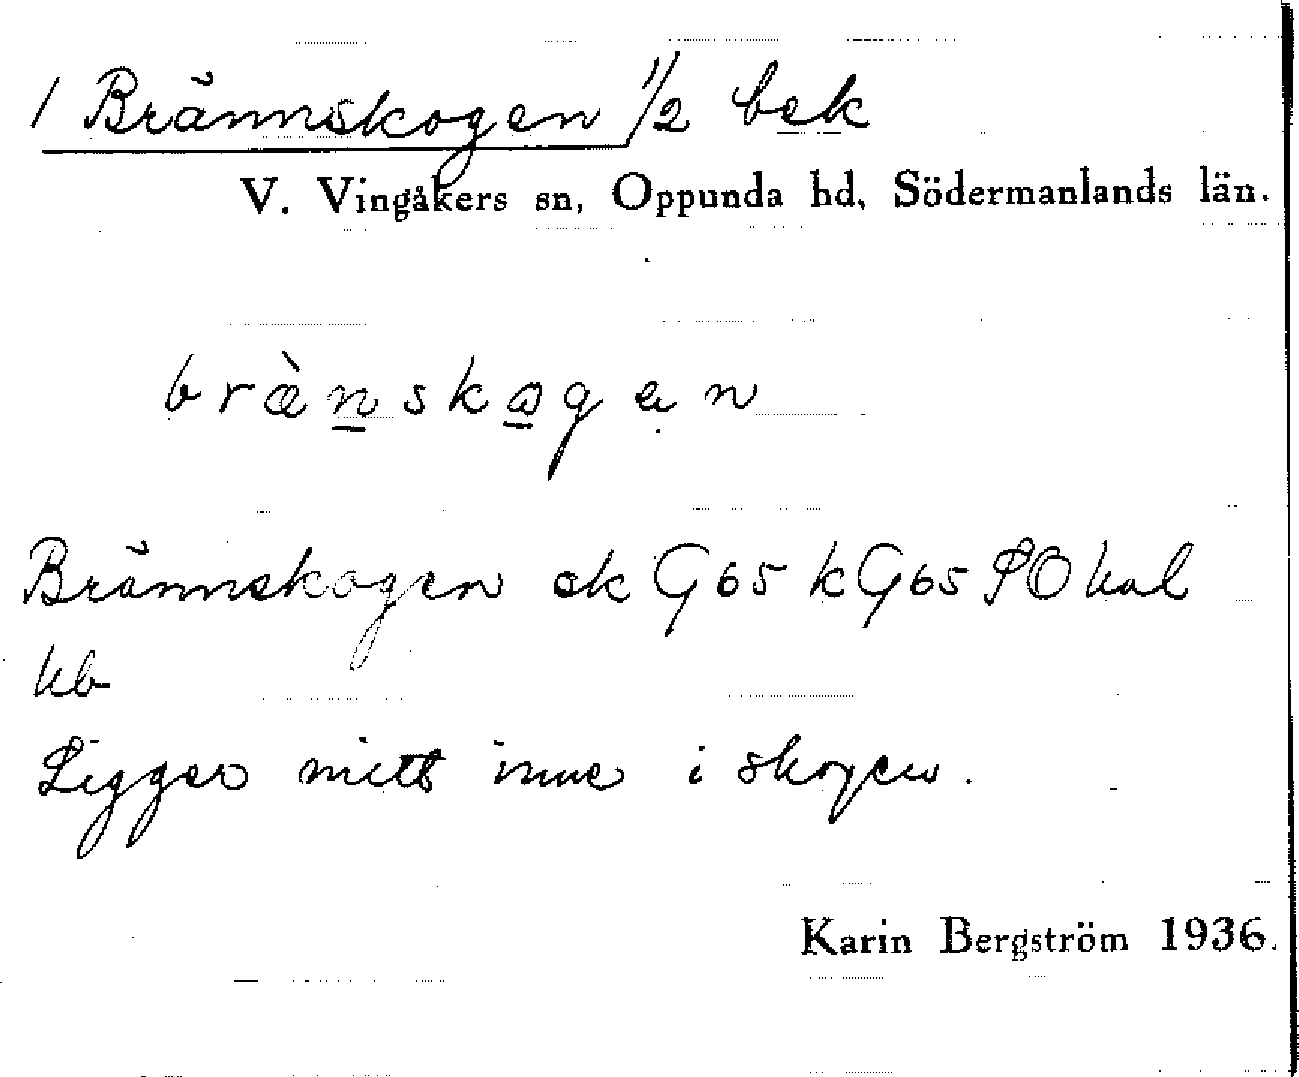 1 Brännskogen 1/2 bek
V. Vingåkers sn, Oppunda hd, Södermanlands län.
bræ̀nskogen
Brännskogen ek G65 kG65 SO hal
hb
Ligger mitt inne i skogen.
Karin Bergström 1936.